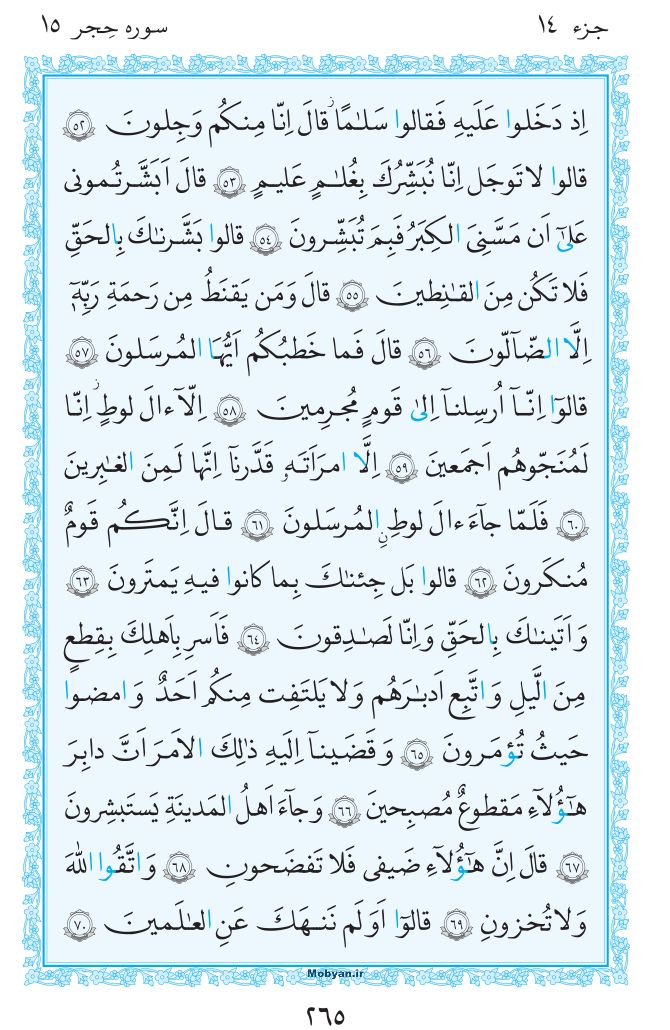 جزء ۱۴
سوره حِجر ۱۵
اِذ دَخَلوا عَلَيهِ فَقالوا سَلٰمًا قالَ اِنّا مِنكُم وَجِلونَ ﴿۵۲﴾
قالوا لا تَوجَل اِنّا نُبَشِّرُكَ بِغُلٰمٍ عَليمٍ ﴿۵۳﴾ قالَ اَبَشَّرتُمونى
عَلىٰٓ اَن مَسَّنِىَ الكِبَرُ فَبِمَ تُبَشِّرونَ ﴿۵۴﴾ قالوا بَشَّرنٰكَ بِالحَقِّ
فَلا تَكُن مِنَ القٰنِطينَ ﴿۵۵﴾ قالَ وَمَن يَقنَطُ مِن رَحمَةِ رَبِّهٖٓ
اِلَّا الضّآلّونَ ﴿۵۶﴾ قالَ فَما خَطبُكُم اَيُّهَا المُرسَلونَ ﴿۵۷﴾
قالوٓا اِنّآ اُرسِلنآ اِلىٰ قَومٍ مُجرِمينَ ﴿۵۸﴾ اِلّآ ءالَ لوطٍ اِنّا
لَمُنَجّوهُم اَجمَعينَ ﴿۵۹﴾ اِلَّا امرَاَتَهٗ قَدَّرنآ اِنَّها لَمِنَ الغٰبِرينَ
﴿۶۰﴾ فَلَمّا جآءَ ءالَ لوطٍ المُرسَلونَ ﴿۶۱﴾ قالَ اِنَّكُم قَومٌ
مُنكَرونَ ﴿۶۲﴾ قالوا بَل جِئنٰكَ بِما كانوا فيهِ يَمتَرونَ ﴿۶۳﴾
وَاَتَينٰكَ بِالحَقِّ وَاِنّا لَصٰدِقونَ ﴿۶۴﴾ فَاَسرِ بِاَهلِكَ بِقِطعٍ
مِنَ الَّيلِ وَاتَّبِع اَدبٰرَهُم وَلا يَلتَفِت مِنكُم اَحَدٌ وَامضوا
حَيثُ تُؤمَرونَ ﴿۶۵﴾ وَقَضَينآ اِلَيهِ ذٰلِكَ الاَمرَ اَنَّ دابِرَ
هٰٓؤُلآءِ مَقطوعٌ مُصبِحينَ ﴿۶۶﴾ وَجآءَ اَهلُ المَدينَةِ يَستَبشِرونَ
﴿۶۷﴾ قالَ اِنَّ هٰٓؤُلآءِ ضَيفى فَلا تَفضَحونِ ﴿۶۸﴾ وَاتَّقُوا اللهَ
وَلا تُخزونِ ﴿۶۹﴾ قالوٓا اَوَلَم نَنهَكَ عَنِ العٰلَمينَ ﴿۷۰﴾
Mobyan.ir
۲۶۵